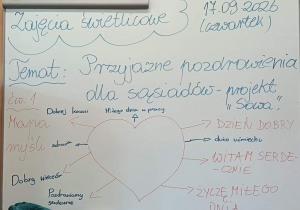 Zajęcia świetlicowe
17.09.2026
(czwartek)
Temat: Przyjazne pozdrowienia
dla sąsiadów - projekt
„Sowa."
Ćw. 1
Mapa
myśli
Miłego dnia w pracy
DZIEŃ DOBRY
dużo uśmiechu
WITAM SERDE-
CZNIE
Dobry wieczór
Pozdrawiamy
serdecznie
ŻYCZĘ MIŁEGO
DNIA